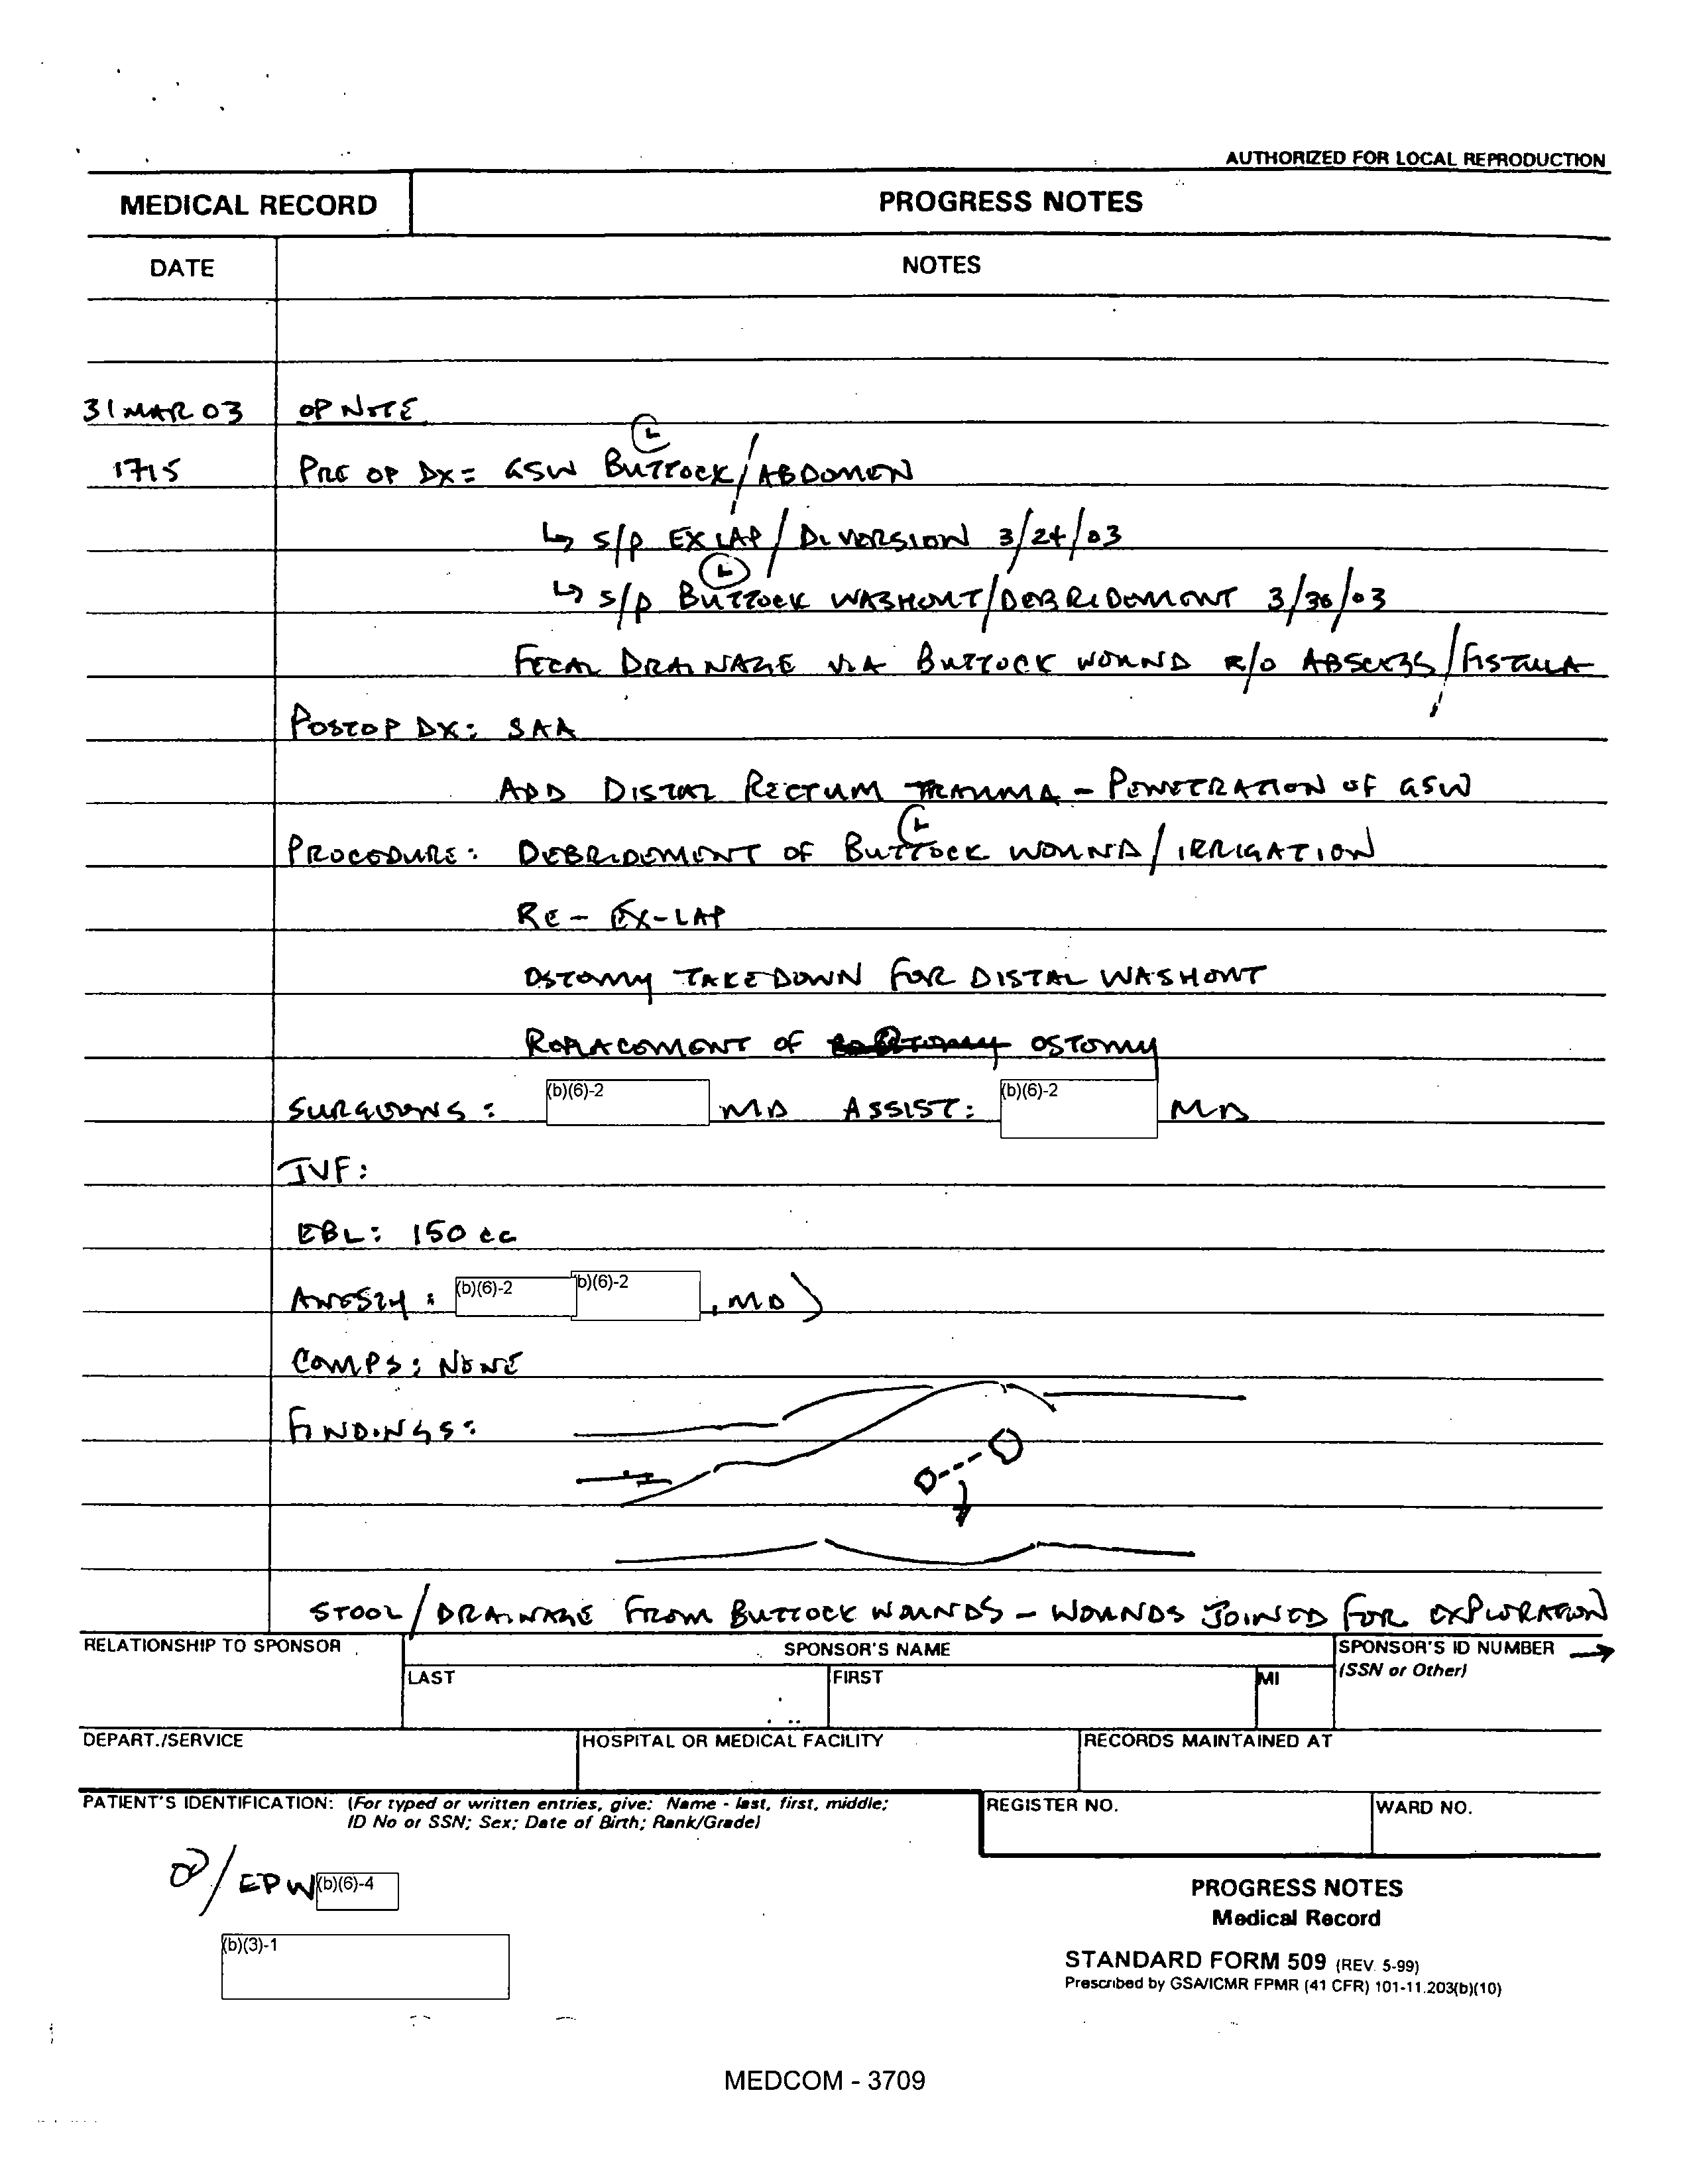 AUTHORIZED FOR LOCAL REPRODUCTION
MEDICAL RECORD PROGRESS NOTES
DATE NOTES
31 MAR 03 OP NOTE
1715 PRE OP DX = GSW (L) BUTTOCK/ABDOMEN
↳ S/P EX LAP/DIVERSION 3/24/03
↳ S/P (L) BUTTOCK WASHOUT/DEBRIDEMENT 3/30/03
FECAL DRAINAGE VIA BUTTOCK WOUND R/O ABSCESS/FISTULA
POSTOP DX: SAA
ADD DISTAL RECTUM TRAUMA - PENETRATION OF GSW
PROCEDURE: DEBRIDEMENT OF (L) BUTTOCK WOUND/IRRIGATION
RE-EX-LAP
OSTOMY TAKEDOWN FOR DISTAL WASHOUT
REPLACEMENT OF OSTOMY
SURGEONS: (b)(6)-2 MD ASSIST: (b)(6)-2 MD
IVF:
EBL: 150 cc
ANESTH: (b)(6)-2 (b)(6)-2, MD)
COMPS: NONE
FINDINGS:
STOOL/DRAINAGE FROM BUTTOCK WOUNDS - WOUNDS JOINED FOR EXPLORATION
RELATIONSHIP TO SPONSOR SPONSOR'S NAME SPONSOR'S ID NUMBER →
LAST FIRST MI (SSN or Other)
DEPART./SERVICE HOSPITAL OR MEDICAL FACILITY RECORDS MAINTAINED AT
PATIENT'S IDENTIFICATION: (For typed or written entries, give: Name - last, first, middle; REGISTER NO. WARD NO.
ID No or SSN; Sex; Date of Birth; Rank/Grade)
/EPW (b)(6)-4
(b)(3)-1
PROGRESS NOTES
Medical Record
STANDARD FORM 509 (REV. 5-99)
Prescribed by GSA/ICMR FPMR (41 CFR) 101-11.203(b)(10)
MEDCOM - 3709